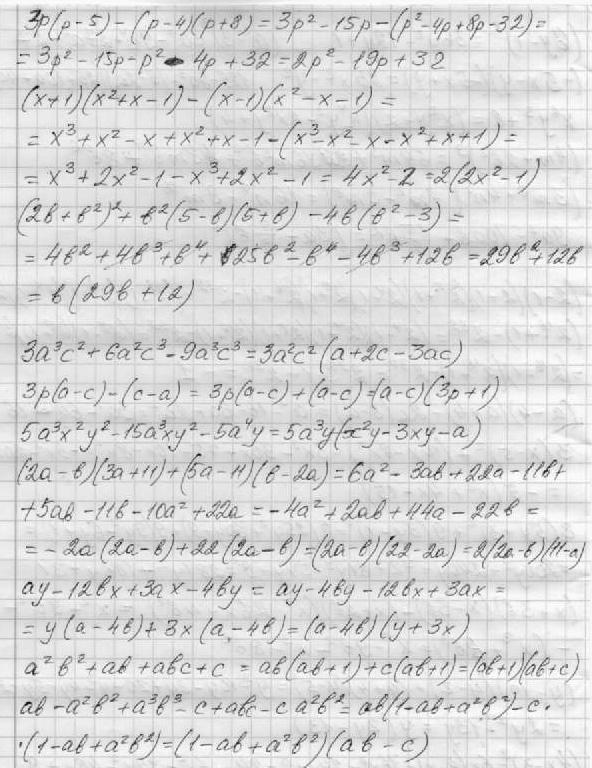 3p(p-5) - (p-4)(p+8) = 3p² - 15p - (p² - 4p + 8p - 32) =
= 3p² - 15p - p² - 4p + 32 = 2p² - 19p + 32
(x+1)(x²+x-1) - (x-1)(x²-x-1) =
= x³ + x² - x + x² + x - 1 - (x³ - x² - x - x² + x + 1) =
= x³ + 2x² - 1 - x³ + 2x² - 1 = 4x² - 2 = 2(2x² - 1)
(2b + b²)² + b²(5-b)(5+b) - 4b(b² - 3) =
= 4b² + 4b³ + b⁴ + 25b² - b⁴ - 4b³ + 12b = 29b² + 12b
= b(29b + 12)
3a³c² + 6a²c³ - 9a³c³ = 3a²c²(a + 2c - 3ac)
3p(a-c) - (c-a) = 3p(a-c) + (a-c) = (a-c)(3p+1)
5a³x²y² - 15a³xy² - 5a⁴y = 5a³y(x²y - 3xy - a)
(2a-b)(3a+11) + (5a-11)(b-2a) = 6a² - 3ab + 22a - 11b +
+ 5ab - 11b - 10a² + 22a = -4a² + 2ab + 44a - 22b =
= -2a(2a-b) + 22(2a-b) = (2a-b)(22-2a) = 2(2a-b)(11-a)
ay - 12bx + 3ax - 4by = ay - 4by - 12bx + 3ax =
= y(a-4b) + 3x(a-4b) = (a-4b)(y+3x)
a²b² + ab + abc + c = ab(ab+1) + c(ab+1) = (ab+1)(ab+c)
ab - a²b² + a³b³ - c + abc - ca²b² = ab(1-ab+a²b²) - c·
·(1-ab+a²b²) = (1-ab+a²b²)(ab-c)